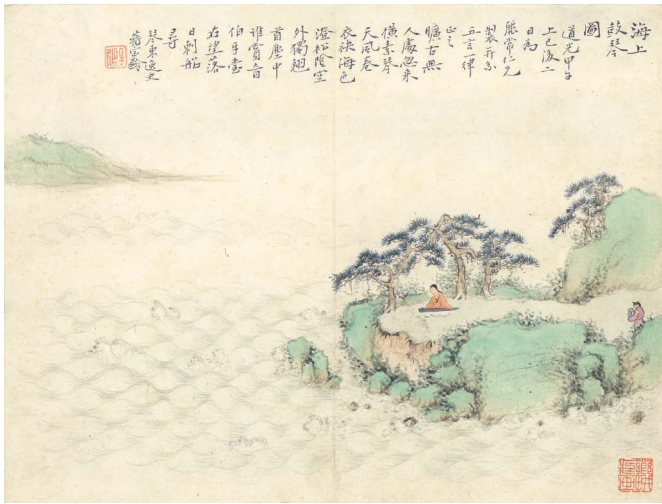 海上
鼓琴
圖
道光甲午
上巳後二
日為
常仁兄
製并系
五言一律
正之
曠古無
人處忽來
橫素琴
天風卷
衣袂海色
澄松陰空
外獨翹
首塵中
誰賞音
伯牙臺
在望落
日刺船
尋
琴東逸史
蔣寶齡